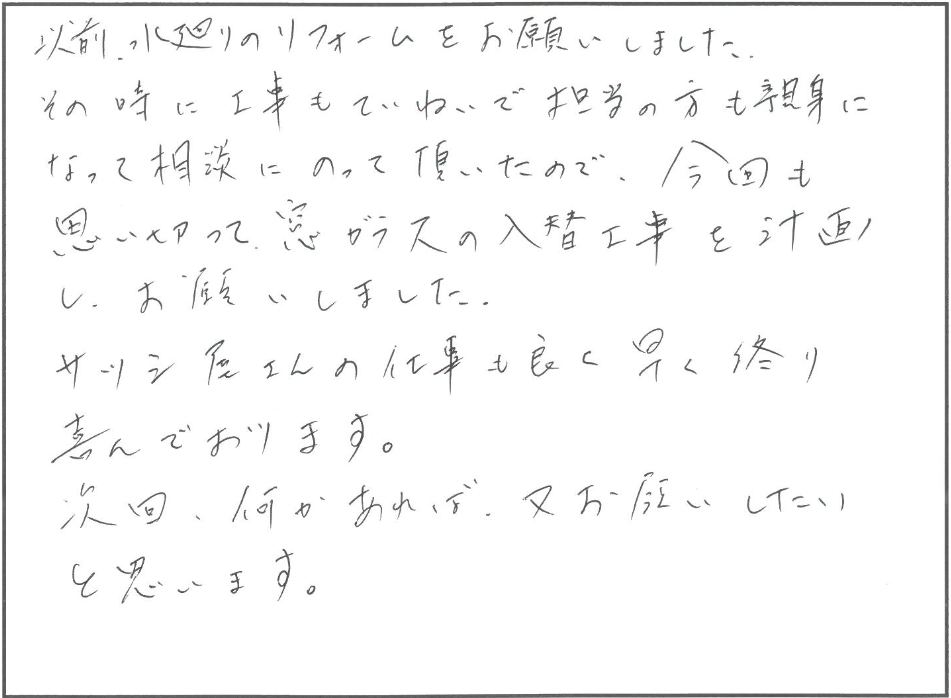 以前、水廻りのリフォームをお願いしました。
その時に工事もていねいで担当の方も親身に
なって相談にのって頂いたので、今回も
思い切って、窓ガラスの入替工事を計画
し、お願いしました。
サッシ屋さんの仕事も良く早く終り
喜んでおります。
次回、何かあれば、又お願いしたい
と思います。